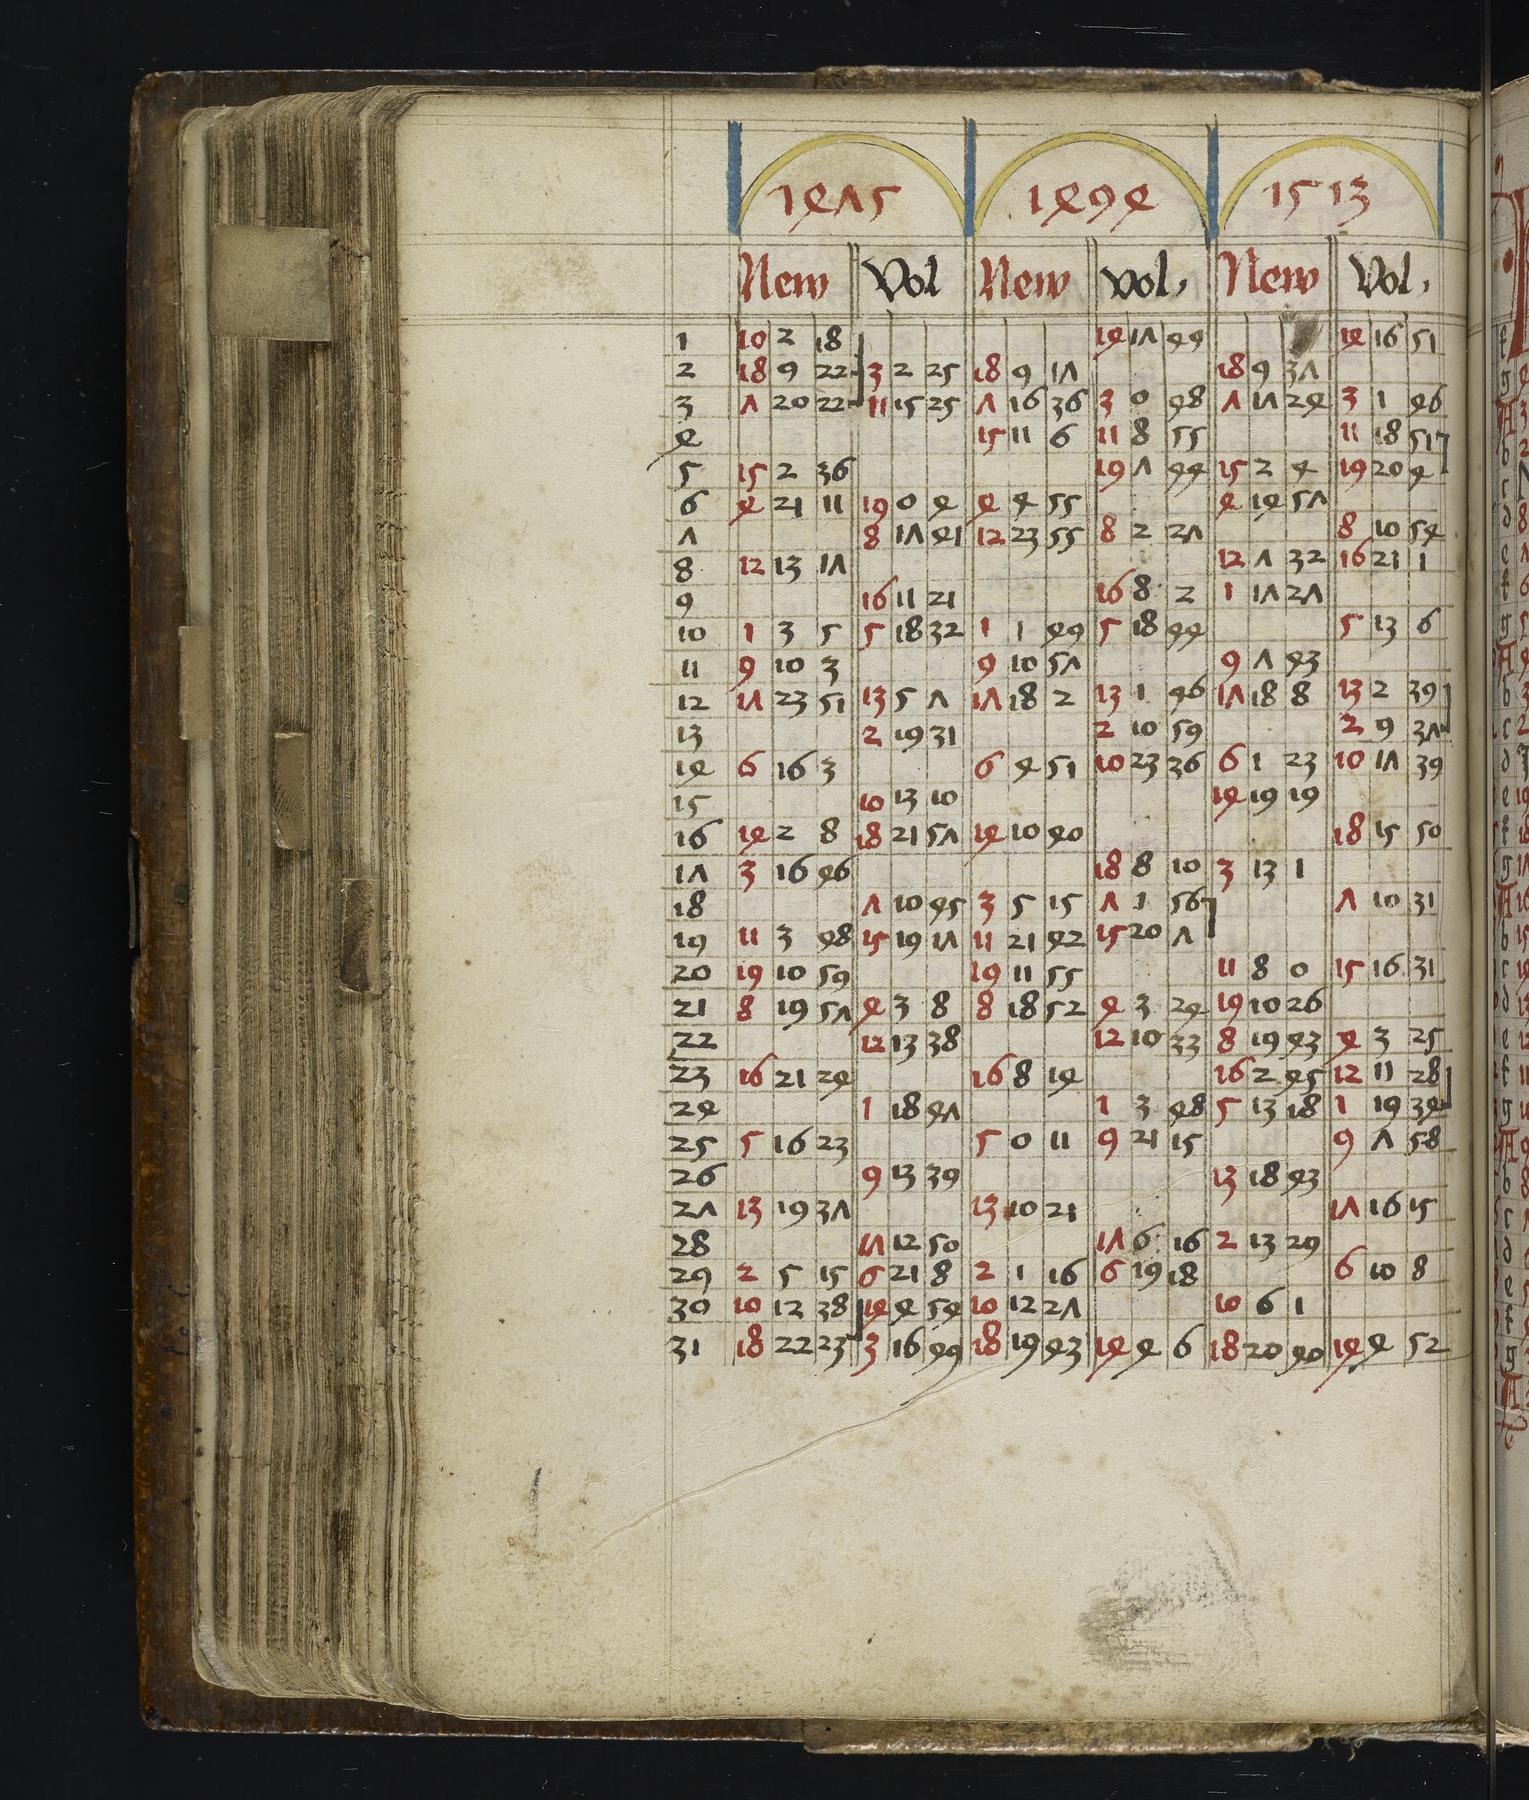 1475 1494 1513
New Vol New vol. New Vol.
1 10 2 18 14 17 44 14 16 51
2 18 9 22 3 2 25 18 9 17 18 9 37
3 7 20 22 11 15 25 7 16 36 3 0 48 7 17 24 3 1 46
4 15 11 6 11 8 55 11 18 51
5 15 2 36 19 7 44 15 2 4 19 20 4
6 4 21 11 19 0 4 4 4 55 4 14 57
7 8 17 41 12 23 55 8 2 27 8 10 54
8 12 13 17 12 7 32 16 21 1
9 16 11 21 16 8 2 1 17 27
10 1 3 5 5 18 32 1 1 49 5 18 44 5 13 6
11 9 10 3 9 10 57 9 7 43
12 17 23 51 13 5 7 17 18 2 13 1 46 17 18 8 13 2 39
13 2 19 31 2 10 59 2 9 37
14 6 16 3 6 4 51 10 23 36 6 1 23 10 17 39
15 10 13 10 14 19 19
16 14 2 8 18 21 57 14 10 40 18 15 50
17 3 16 46 18 8 10 3 13 1
18 7 10 45 3 5 15 7 1 56 7 10 31
19 11 3 48 15 19 17 11 21 42 15 20 7
20 19 10 59 19 11 55 11 8 0 15 16 31
21 8 19 57 4 3 8 8 18 52 4 3 24 19 10 26
22 12 13 38 12 10 33 8 19 43 4 3 25
23 16 21 24 16 8 14 16 2 45 12 11 28
24 1 18 47 1 3 48 5 13 18 1 19 34
25 5 16 23 5 0 11 9 21 15 9 7 58
26 9 13 39 13 18 43
27 13 19 37 13 10 21 17 16 15
28 17 12 50 17 6 16 2 13 29
29 2 5 15 6 21 8 2 1 16 6 19 18 6 10 8
30 10 12 38 14 4 54 10 12 27 10 6 1
31 18 22 23 3 16 49 18 19 43 14 4 6 18 20 40 14 4 52